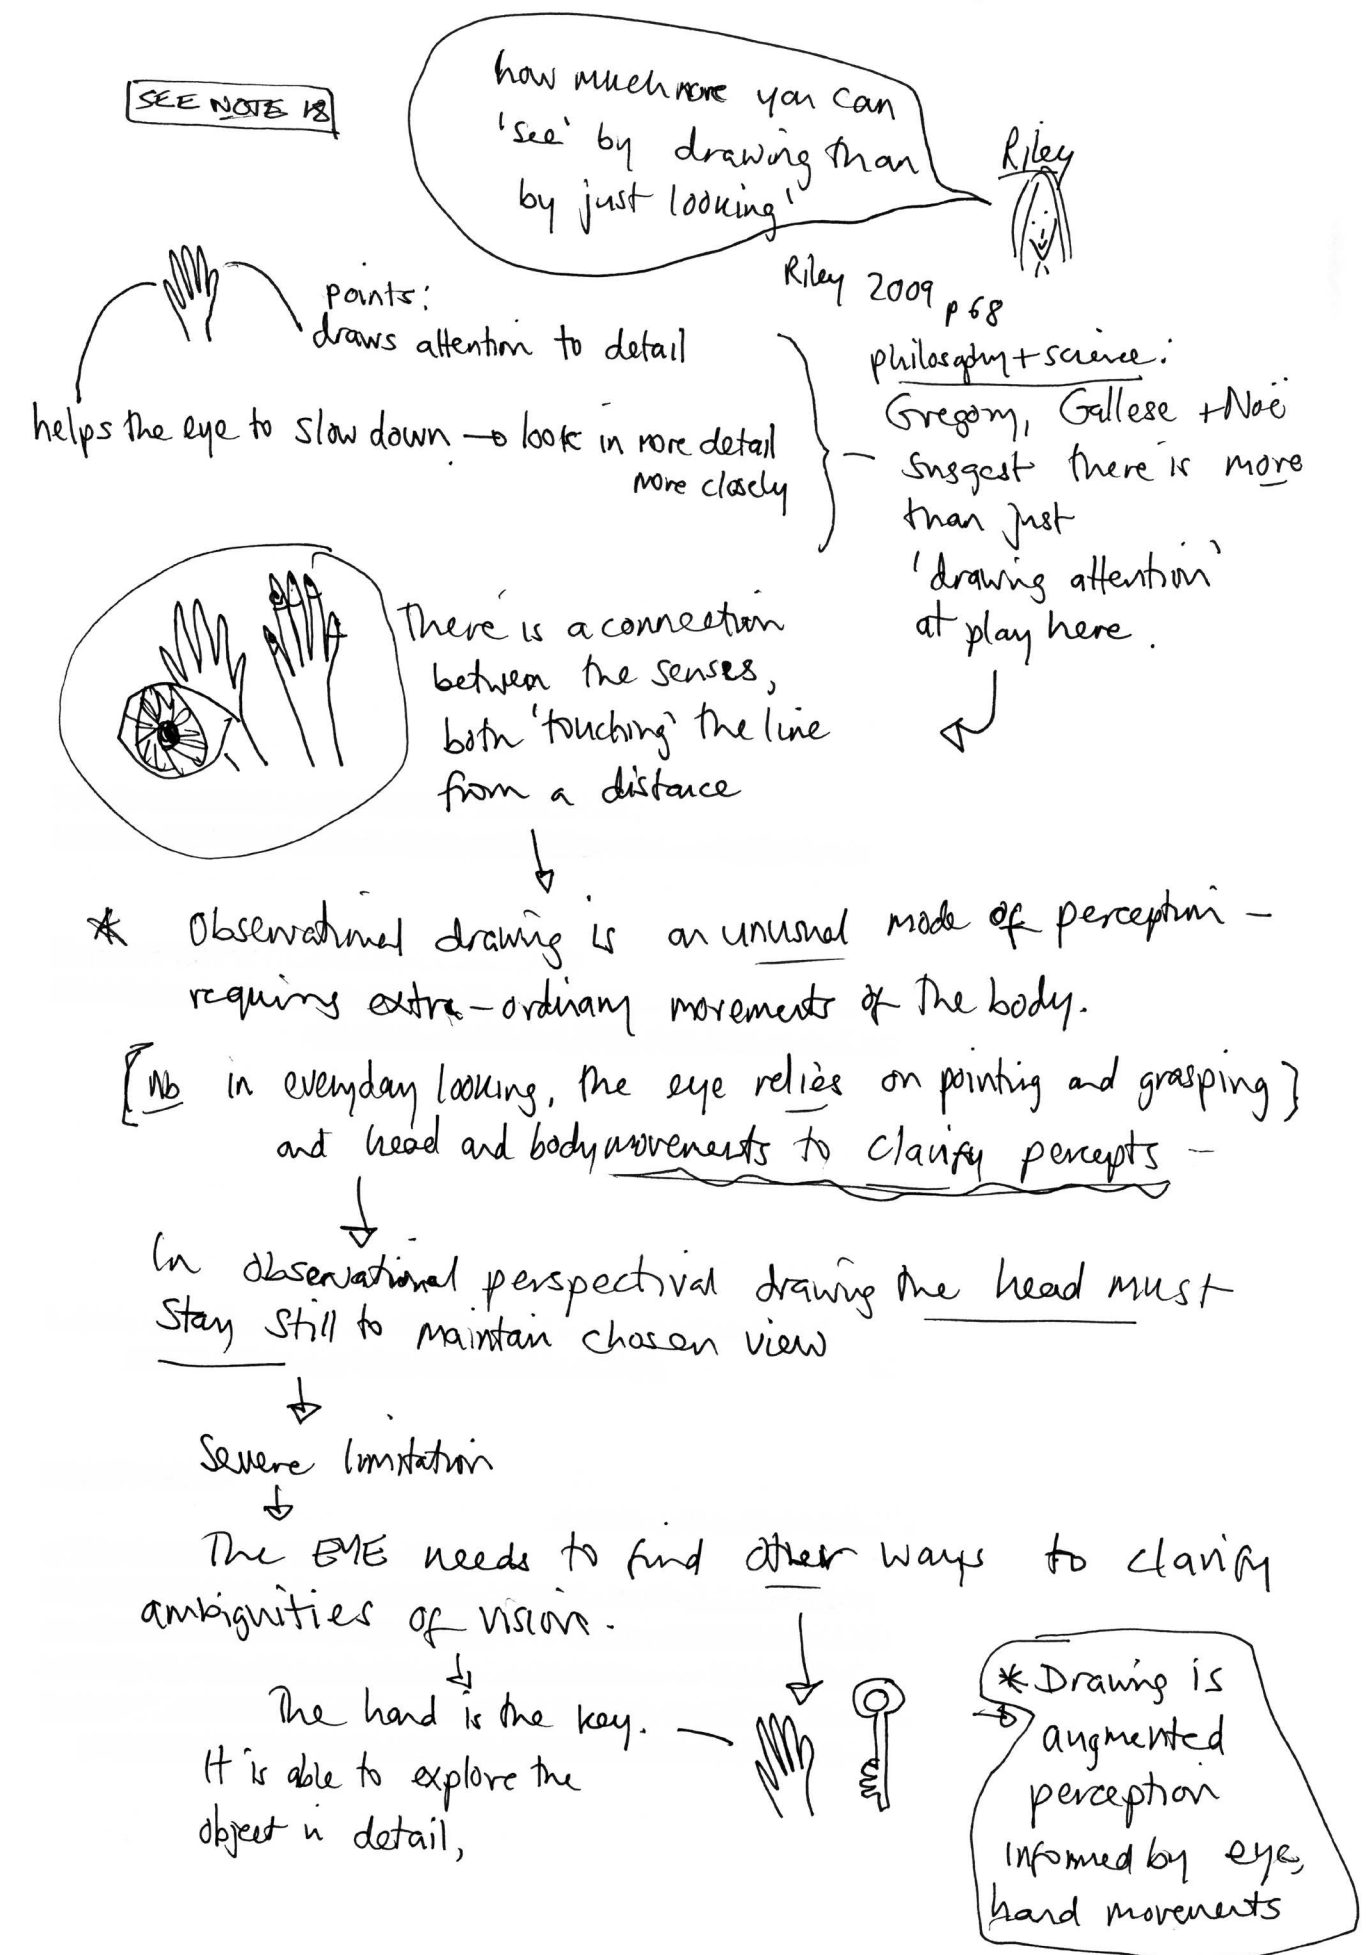 SEE NOTE 18
how much more you can
'see' by drawing than
by just looking'
Riley
Riley 2009 p 68
points:
draws attention to detail
helps the eye to slow down → look in more detail
more closely
philosophy + science:
Gregory, Gallese + Noë
suggest there is more
than just
'drawing attention'
at play here.
There is a connection
between the senses,
both 'touching' the line
from a distance
* Observational drawing is an unusual mode of perception –
requiring extra-ordinary movements of the body.
[Nb in everyday looking, the eye relies on pointing and grasping]
and head and body movements to clarify percepts –
In observational perspectival drawing the head must
stay still to maintain chosen view
Severe limitation
The EYE needs to find other ways to clarify
ambiguities of vision.
The hand is the key. –
It is able to explore the
object in detail,
* Drawing is
augmented
perception
informed by eye,
hand movements